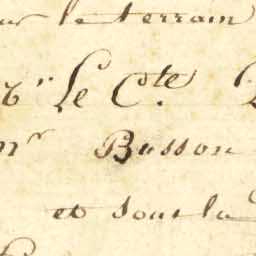 sur le terrain
Mr Le Cte.
mr Busson
et sous la